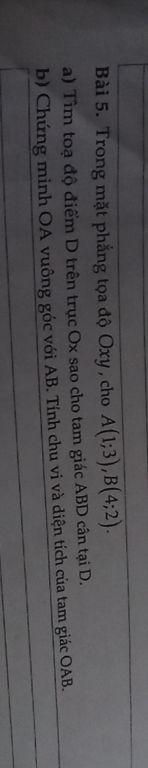 Bài 5. Trong mặt phẳng tọa độ Oxy, cho A(1;3), B(4;2).
a) Tìm toạ độ điểm D trên trục Ox sao cho tam giác ABD cân tại D.
b) Chứng minh OA vuông góc với AB. Tính chu vi và diện tích của tam giác OAB.